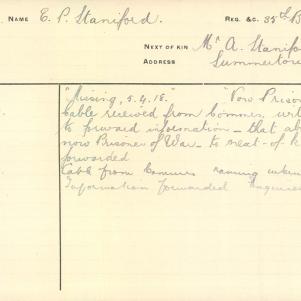 NAME E. P. Staniford. REG. &C. 35th B
NEXT OF KIN Mr A. Stanifo
ADDRESS Summerto
"Missing, 5.4.18." "Now Priso
Cable received from Commrs, 
to forward information – that ab
now Prisoner of War – to next-of-k
forwarded
Cable from Commrs
Information forwarded